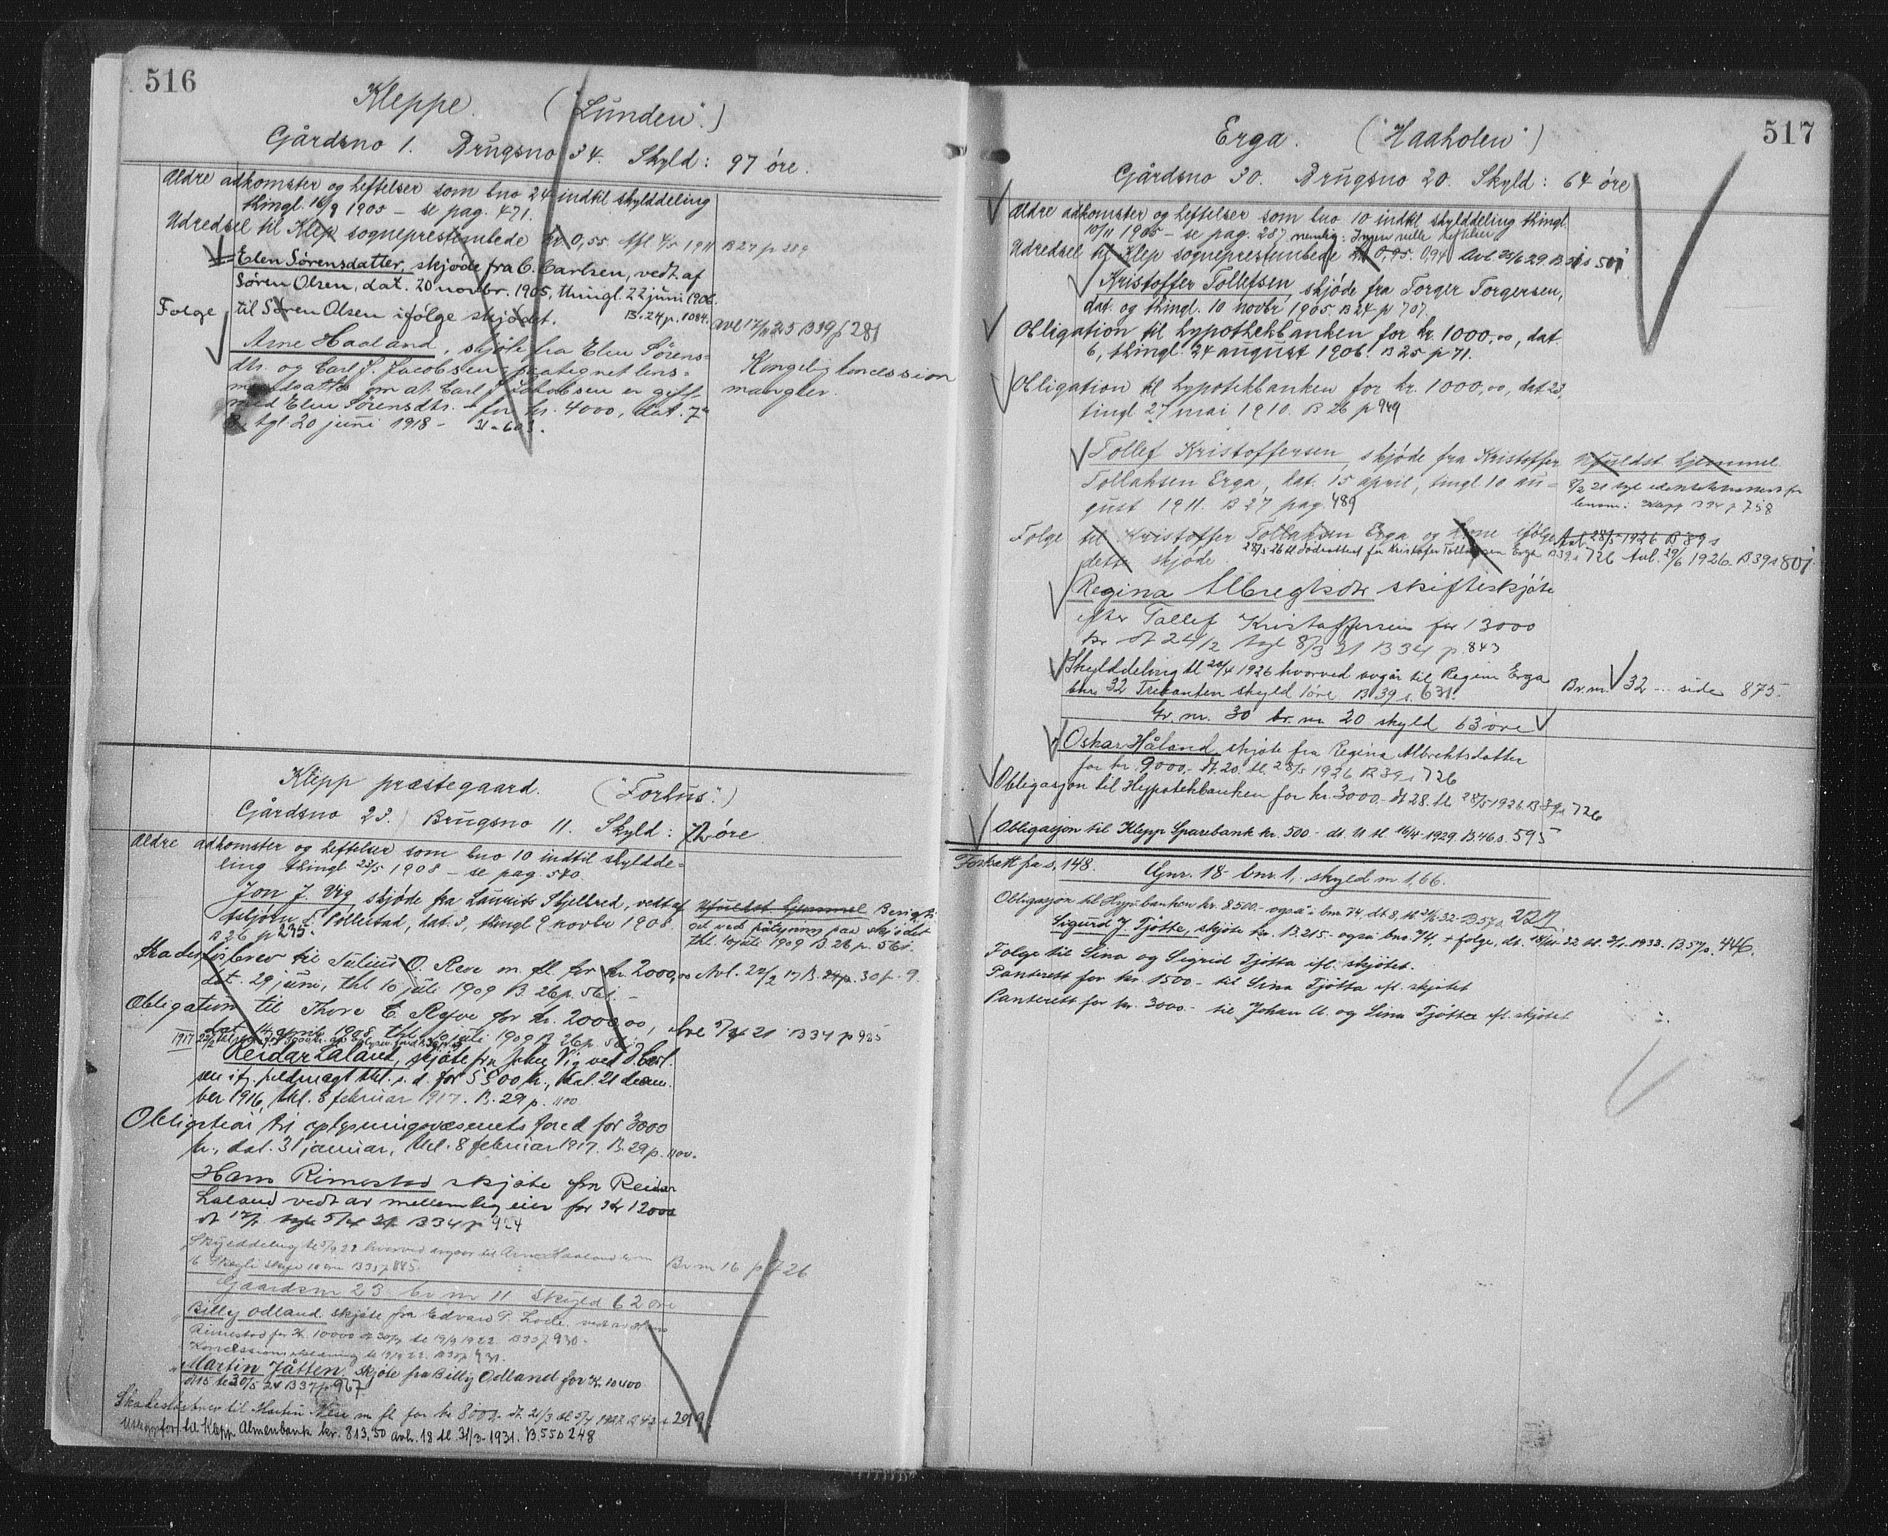 516
Kleppe. ("Lunden".)
Gårdsno 1. Brugsno 34. Skyld: 97 øre.
Ældre adkomster og heftelser som bno 24 indtil skylddeling
thingl. 16/9 1905 – se pag. 471.
Udredsel til Klep sogneprestembede kr 0,55 B 27 p 389
Elen Sørensdatter, skjøde fra C. Carlsen, vedt af
Søren Olsen, dat. 20 novbr. 1905, thingl 22 juni 1906.
B. 24 p. 1084.
Folge til Søren Olsen ifølge skjødet. B 39 p 281
Arne Haaland, skjøte fra Elen Sørens=
dtr. og Carl S. Jacobsen – paategnet lens=
mandsattest om at Carl Jacobsen er gift
med Elen Sørensdtr. – for kr. 4000, dat. 7de
tgl 20 juni 1918 –
Kongelig koncession
mangler.
Klepp præstegaard. ("Forhus".)
Gårdsno 23. Brugsno 11. Skyld: 72 øre
Ældre adkomster og heftelser som bno 10 indtil skyldde=
ling thingl 23/5 1908 – se pag. 540.
Jon J. Vig, skjøde fra Laurits Skjelbred, vedt af
Pollestad, dat. 3, thingl 9 novbr 1908.
B 26 p 235.
Ufuldst Hjemmel Berigti
get ved paategning paa skjødet
thl. 10 juli 1909 B 26 p. 561.
Skadesløsbrev til Julius O. Reve m. fl. for kr. 2000,00 Avl. 22/2 17 B. p. 30 p. 9.
dat. 29 juni, thl 10 juli 1909 B. 26 p. 561 –
Obligation til Thore E. Reve for kr. 2000,00, B 34 p 985
dat. 14 april 1908, thl. 10 juli 1909 B 26 p. 561
Reidar Laland, skjøte fra John Vig ved O. Carl=
sen if. fuldmagt thl. s. d. for 5500 kr., dat. 21 decem=
ber 1916, thl. 8 februar 1917. B. 29 p. 1100
Obligation til oplysningsvæsenets fond for 3000
kr., dat. 31 januar, thl. 8 februar 1917. B. 29 p. 1100.
Hans Rimestad skjøte fra Reidar
Laland vedt av mellemlig eier for Kr 12000
B 34 p 924
Skylddeling hvorved avgaar til Arne Haaland
Br nr 16 p 726
Gaardsnr 23 br nr 11 skyld 62 øre
Billy Odland skjøte fra Edvard P. Lode
Rimestad for Kr. 10000 19/9 1922 B 35 p 930 –
Martin Jåtten, skjøte fra Billy Odland for Kr. 10400
30/5 24 B 37 p 967
Skadesløsbrev til Martin m fl for kr 8000,– dt. 21/3 tl 5/4 1927 B 42 s 299
til Klepp Almenbank kr. 813,50 avh. 18 tl. 31/3-1931. B. 55 s 248
517
Erga. ("Haaholen")
Gårdsno 30. Brugsno 20. Skyld: 64 øre
Ældre adkomster og heftelser som bno 10 indtil skylddeling thingl
10/11 1905 – se pag. 287 nemlig:
Udredsel til Klep sogneprestembede kr 0,95. 0,94 Avl 25/6 29 B s 501
Kristoffer Tollefsen, skjøde fra Torger Torgersen,
dat. og thingl. 10 novbr 1905 B 24 p 707.
Obligation til hypothekbanken for kr. 1000,00, dat.
6, thingl. 24 august 1906. B 25 p 71.
Obligation til hypotekbanken for kr. 1000,00, dat 23,
tingl 27 mai 1910. B 26 p 949
Tollef Kristoffersen, skjøde fra Kristoffer
Tollaksen Erga, dat. 15 april, tingl 10 au=
gust 1911. B 27 pag. 489
Ufuldst hjemmel
Klepp B 34 p 758
Folge til Kristoffer Tollaksen Erga og kone ifølge
dette skjøde
Avl. 28/5 1926 B 39 s
B 39 s 726 Avl. 29/6 1926. B 39 s 801
Regina Albregtsdtr skifteskjøte
efter Tollef Kristoffersen for 13000
kr dt 24/2 tgl 8/3 21 B 34 p. 843
Skylddeling tl 20/4 1926 hvorved avgår til Regine Erga
bnr. 32 Trekanten skyld 1 øre B 39 s. 631.
Br. nr. 32 ... side 875.
Gr. nr. 30 br. nr 20 skyld 63 øre
Oskar Håland, skjøte fra Regina Albrechtsdatter
for kr. 9000.– dt. 20. tl. 28/5 1926 B 39 s 726
Obligasjon til Hypotekbanken for kr. 3000.– dt 28. tl 28/5 1926 B 39 s 726
Obligasjon til Klepp Sparebank kr. 500 – dt. 11 tl 16/4 1929 B. 46 s. 595
Fortsatt fra s. 148. Gnr. 18 bnr. 1, skyld m 1,66.
Obligasjon til Hypo.banken kr. 8500.– også i bnr. 74, dt. 8, tl 32 B 57 s. 227
Sigurd J. Tjøtta, skjøte kr. B. 215.– også bno. 74, + folge, dt. 32 tl. 3/1. 1933. B. 57 s. 446.
Folge til Sina og Sigrid Tjøtta ifl. skjøtet.
Panterett for kr. 1500.– til Sina Tjøtta ifl. skjøtet
Panterett for kr. 3000.– til Johan A. og Sina Tjøtta ifl. skjøtet